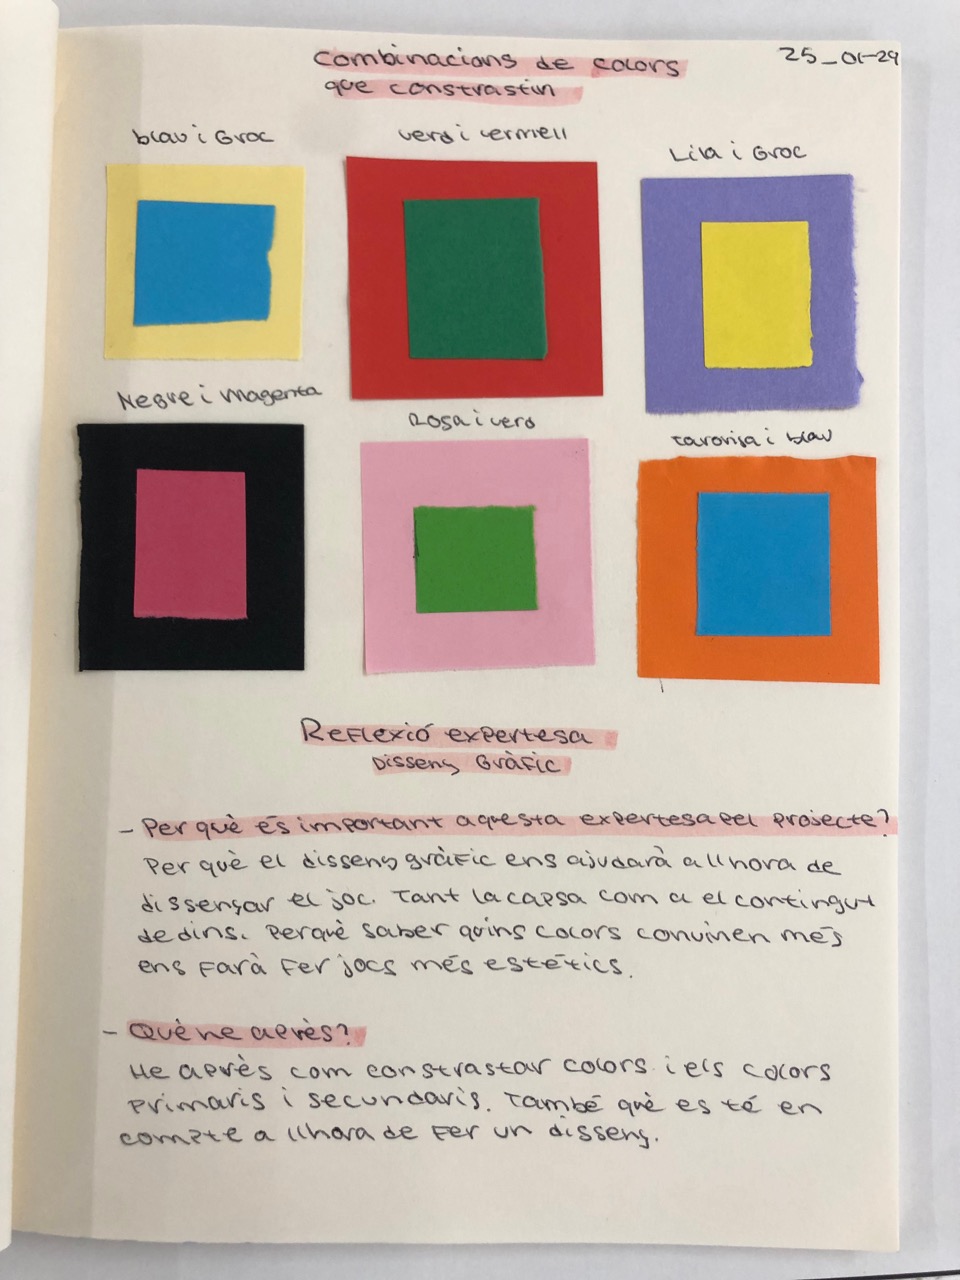 25_01-29
Combinacions de colors
que constrastin
blau i Groc
verd i vermell
Lila i Groc
Negre i Magenta
Rosa i verd
taronja i blau
Reflexió expertesa
Disseny Gràfic
- Per què és important aquesta expertesa pel projecte?
Per què el disseny gràfic ens ajudarà a llhora de
dissenyar el joc. Tant la capsa com a el contingut
de dins. Perquè saber quins colors convinen més
ens farà fer jocs més estètics.
- Què he après?
He après com constrastar colors i els colors
primaris i secundaris. També què es té en
compte a llhora de fer un disseny.